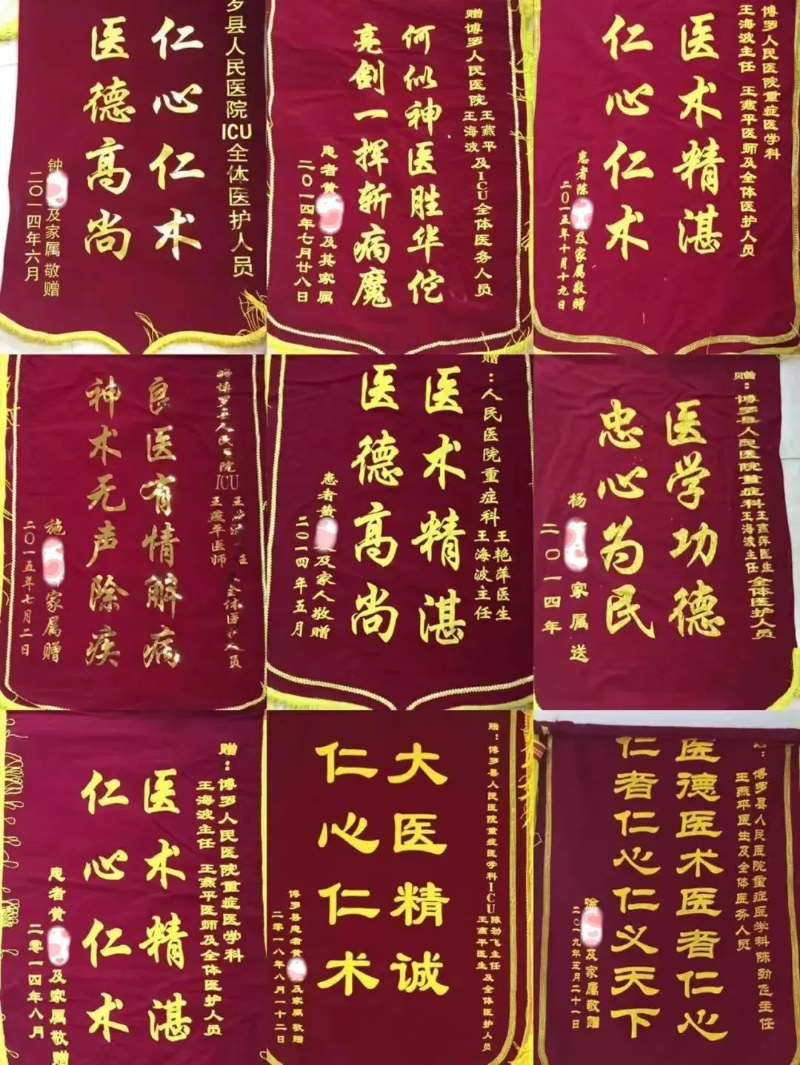 罗县人民医院ICU全体医护人员
仁心仁术
医德高尚
钟
及家属敬赠
二〇一四年六月
赠博罗人民医院
王燕平
王海波
及ICU全体医务人员
何似神医胜华佗
亮剑一挥斩病魔
患者黄
及其家属
二〇一四年七月廿八日
博罗人民医院重症医学科
王海波主任 王燕平医师及全体医护人员
医术精湛
仁心仁术
患者陈
及家属敬赠
二〇一五年十月十九日
赠博罗县人民医院ICU
王燕平医师
全体医护人员
良医有情解病
神术无声除疾
施
家属赠
二〇一五年七月二日
赠：人民医院重症科
王艳萍医生
王海波主任
医术精湛
医德高尚
患者黄
及家人敬赠
二〇一四年五月
赠：博罗县人民医院重症科
王燕萍医生
王海波主任
全体医护人员
医学功德
忠心为民
杨
家属送
二〇一四年
赠：博罗人民医院重症医学科
王海波主任 王燕平医师及全体医护人员
医术精湛
仁心仁术
患者黄
及家属敬赠
二零一四年八月
赠：博罗县人民医院重症医学科ICU
陈劲飞主任
王燕平医生
及全体医务人员
大医精诚
仁心仁术
博罗县患者黄
及家属敬赠
二零一八年八月一十二日
博罗县人民医院重症医学科陈劲飞主任
王燕平医生及全体医务人员
医德医术医者仁心
仁者仁心仁义天下
徐
及家属敬赠
二〇一九年三月二十一日